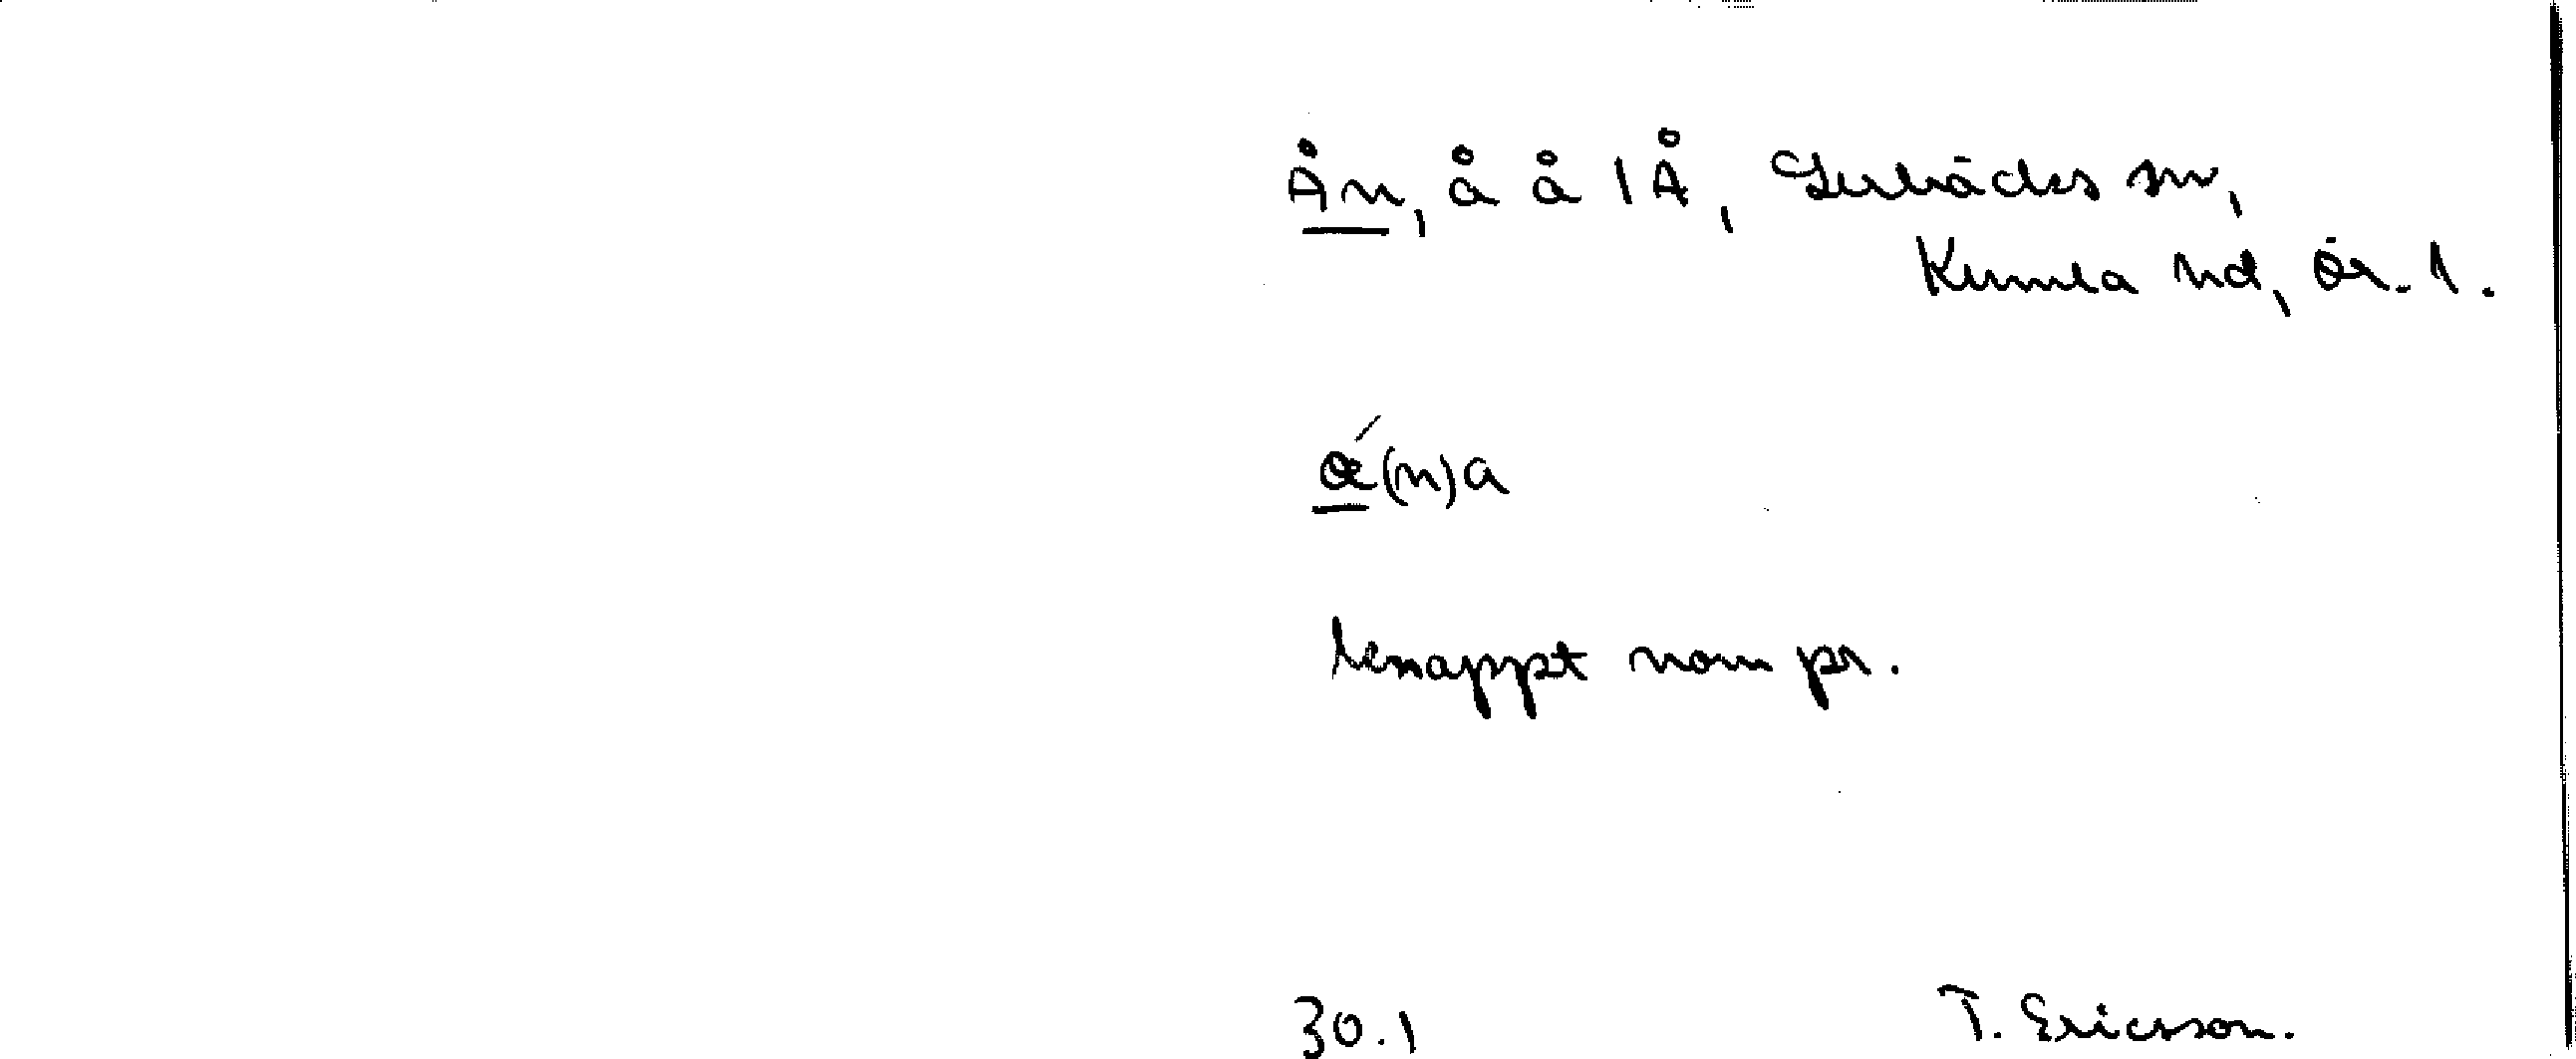 Ån, å å I Å, Lerbäcks sn,
Kumla hd, Ör. l.
(n)a
knappt nom pr.
30.1 T. Ericsson.